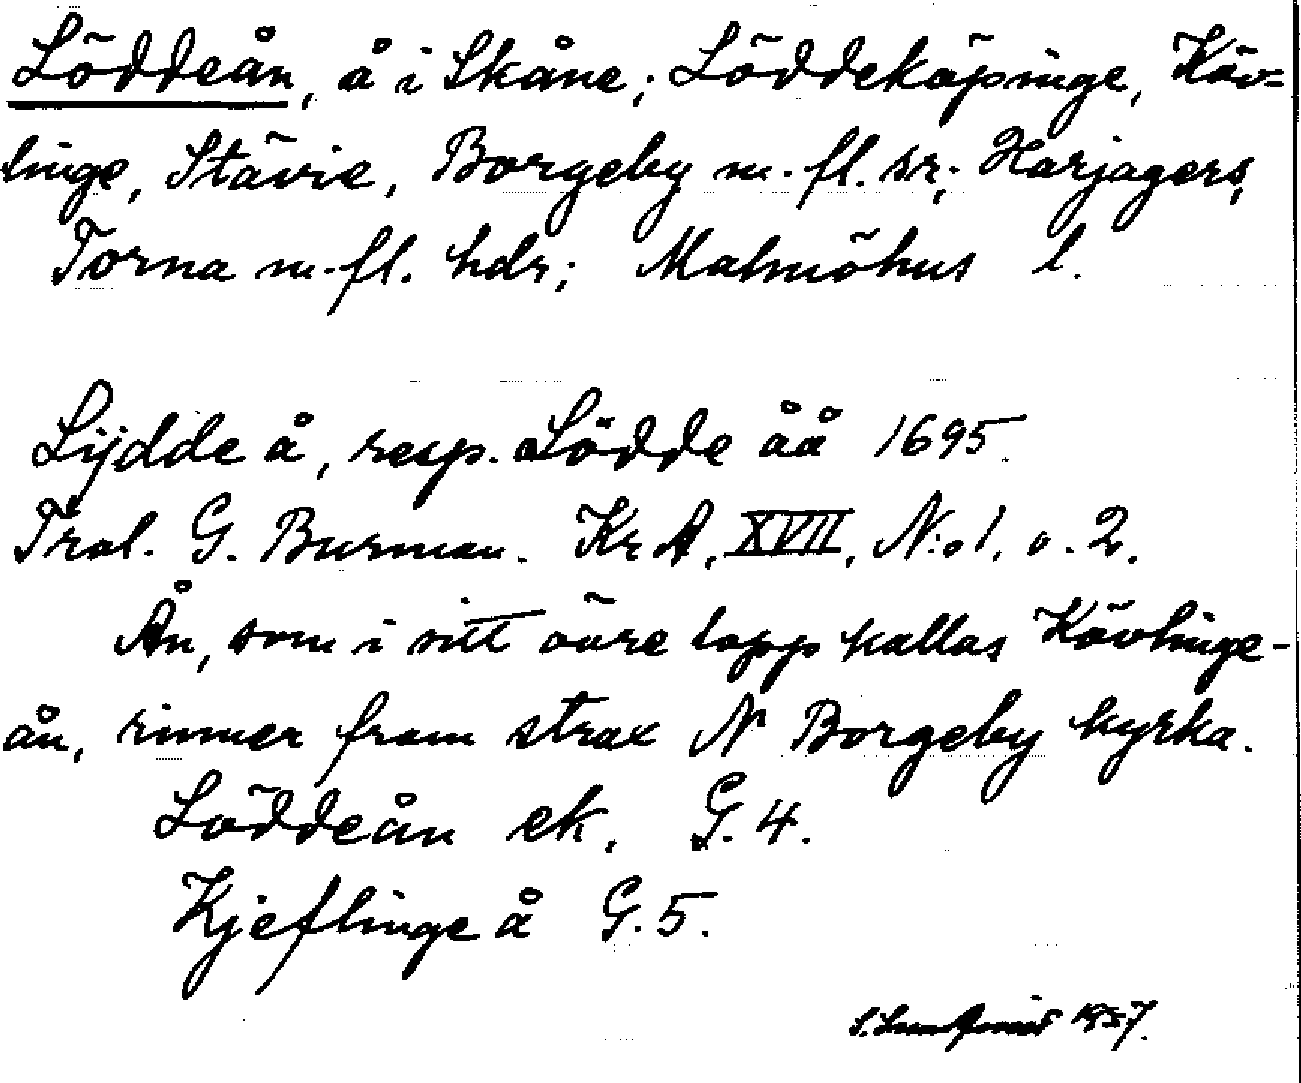 Löddeån, å i Skåne; Löddeköpinge, Käv=
linge, Stävie, Borgeby m. fl. sr; Harjagers,
Torna m. fl. hdr; Malmöhus l.
Lijdde å, resp. Lödde åå 1695.
Trol. G. Burman. Kr A, XVII, N:o 1. o. 2.
Ån, som i sitt övre lopp kallas Kävlinge-
ån, rinner fram strax N Borgeby kyrka.
Löddeån ek. G. 4.
Kjeflinge å G. 5.
1957.